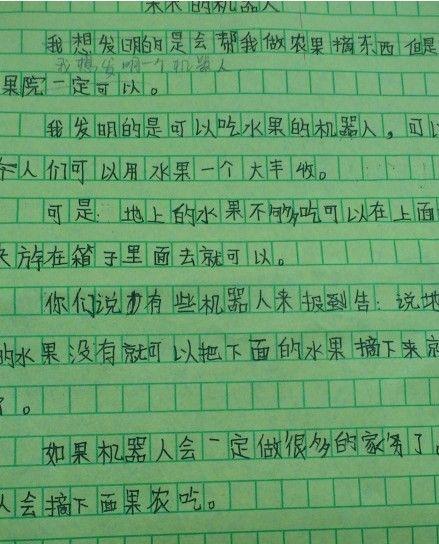 的机器人
我想发明的是会帮我做农果摘东西但是
我想发明一个机器人
果院一定可以。
我发明的是可以吃水果的机器人，可以
个人们可以用水果一个大丰收。
可是地上的水果不够多吃可以在上面
来存在箱子里面去就可以。
你们说有些机器人来报到告：说地
的水果没有就可以把下面的水果摘下来就
了。
如果机器人会一定做很多的家务了。
人会摘下面果农吃。